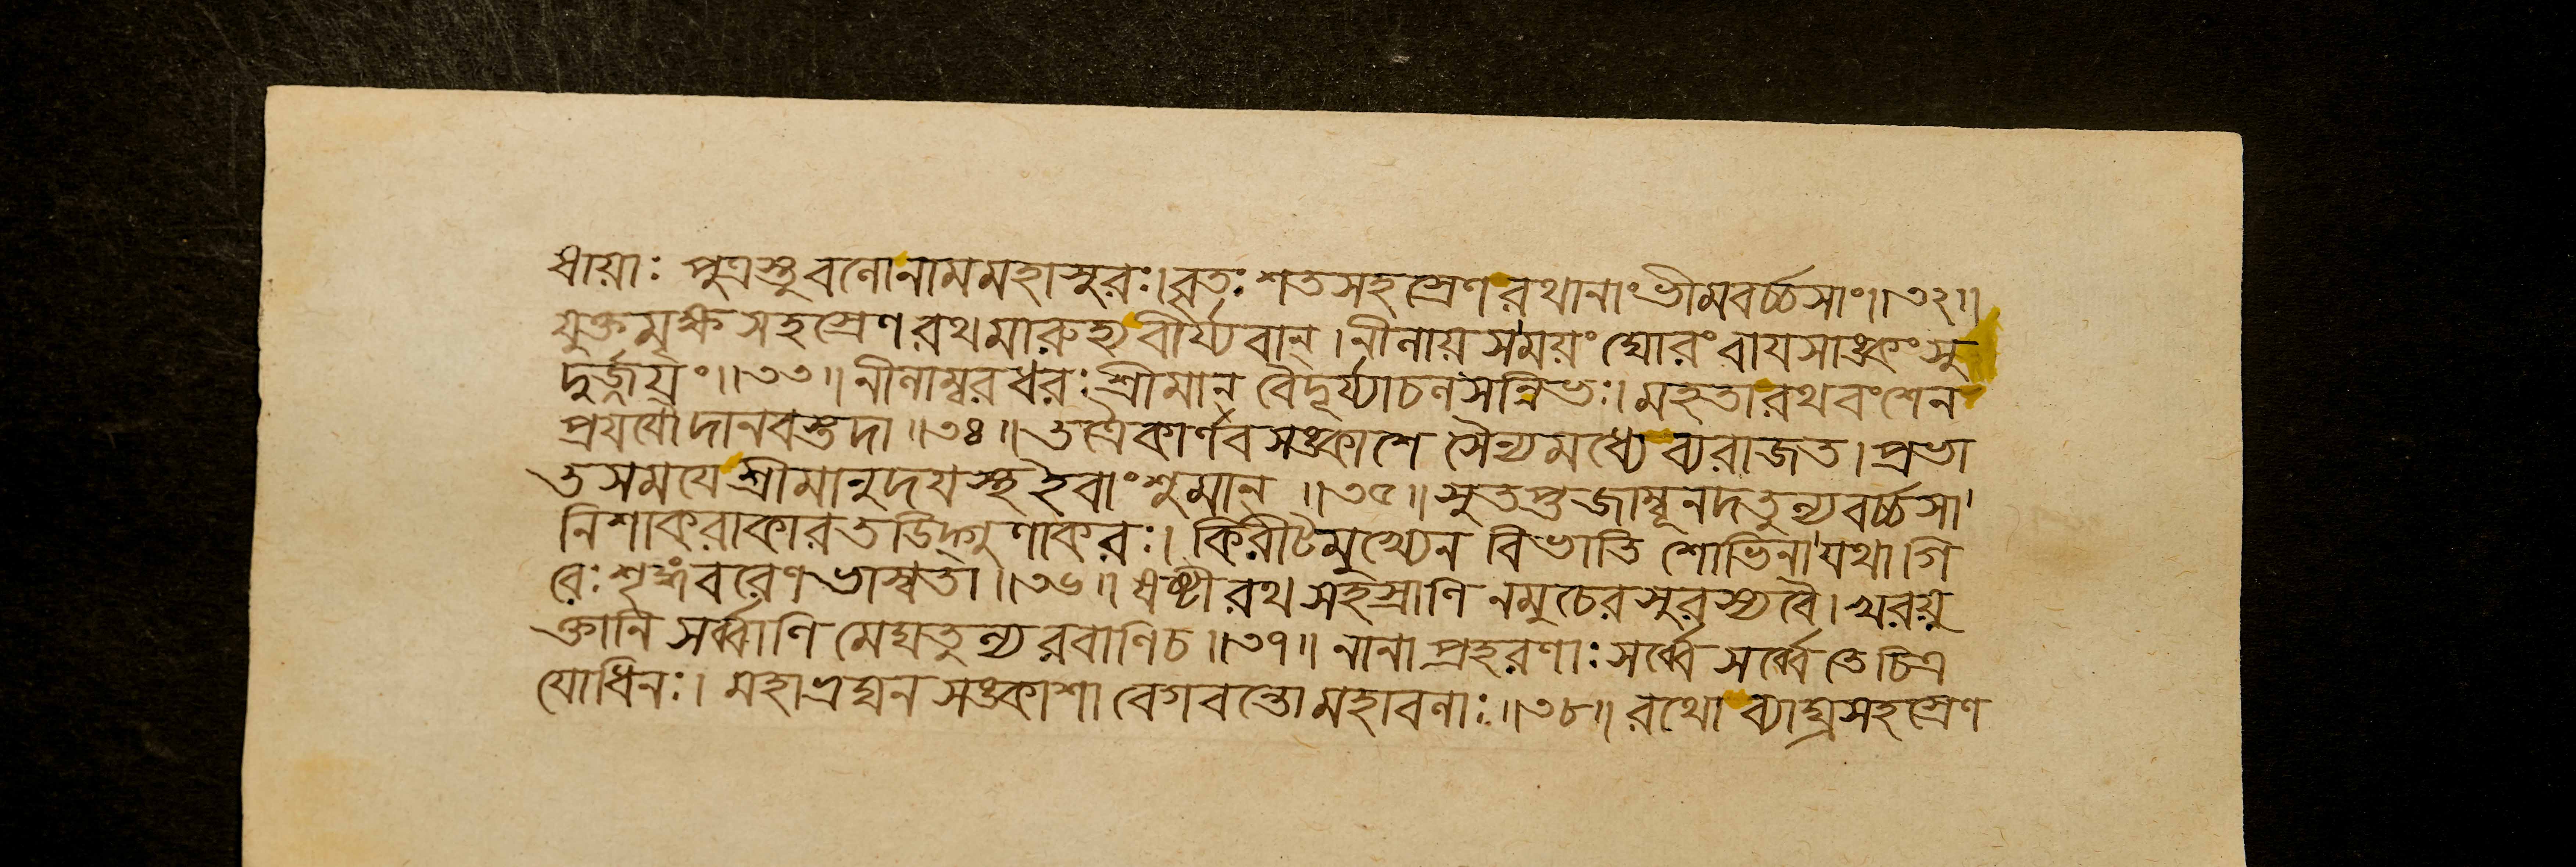 ধায়াঃ পুত্রস্তুবলোনামমহাসুরঃ।বৃতঃশতসহস্রেণরথানাংভীমবর্চ্চসাং॥৩২॥
যুক্তমৃক্ষসহস্রেণরথমারুহ্যবীর্য্যবান্।নীলায়সময়ংঘোরংবায়সাঙ্কংসু
দুর্জ্জয়ং॥৩৩॥নীলাম্বরধরঃশ্রীমান্বৈদূর্য্যাচলসন্নিভঃ।মহতারথবংশেন
প্রযযৌদানবস্তদা॥৩৪॥তত্রৈকার্ণবসঙ্কাশে সৈন্যমধ্যেব্যরাজত।প্রভা
তসময়েশ্রীমানুদয়স্থইবাংশুমান্॥৩৫॥সুতপ্তজাম্বূনদতুল্যবর্চ্চসা
নিশাকরাকারতডিদ্গুণাকরঃ।কিরীটমুখ্যেন বিভাতি শোভিনাযথাগি
রেঃশৃঙ্গংবরেণভাস্বতা॥৩৬॥ষষ্টীরথসহস্রাণি নমুচেরসুরস্যবৈ।খরযু
ক্তানি সর্ব্বাণি মেঘতুল্যরবাণিচ॥৩৭॥নানাপ্রহরণাঃসর্ব্বেসর্ব্বেতেচিত্র
যোধিনঃ।মহাভ্রঘনসঙ্কাশাবেগবন্তোমহাবলাঃ॥৩৮॥রথোব্যাঘ্রসহস্রেণ